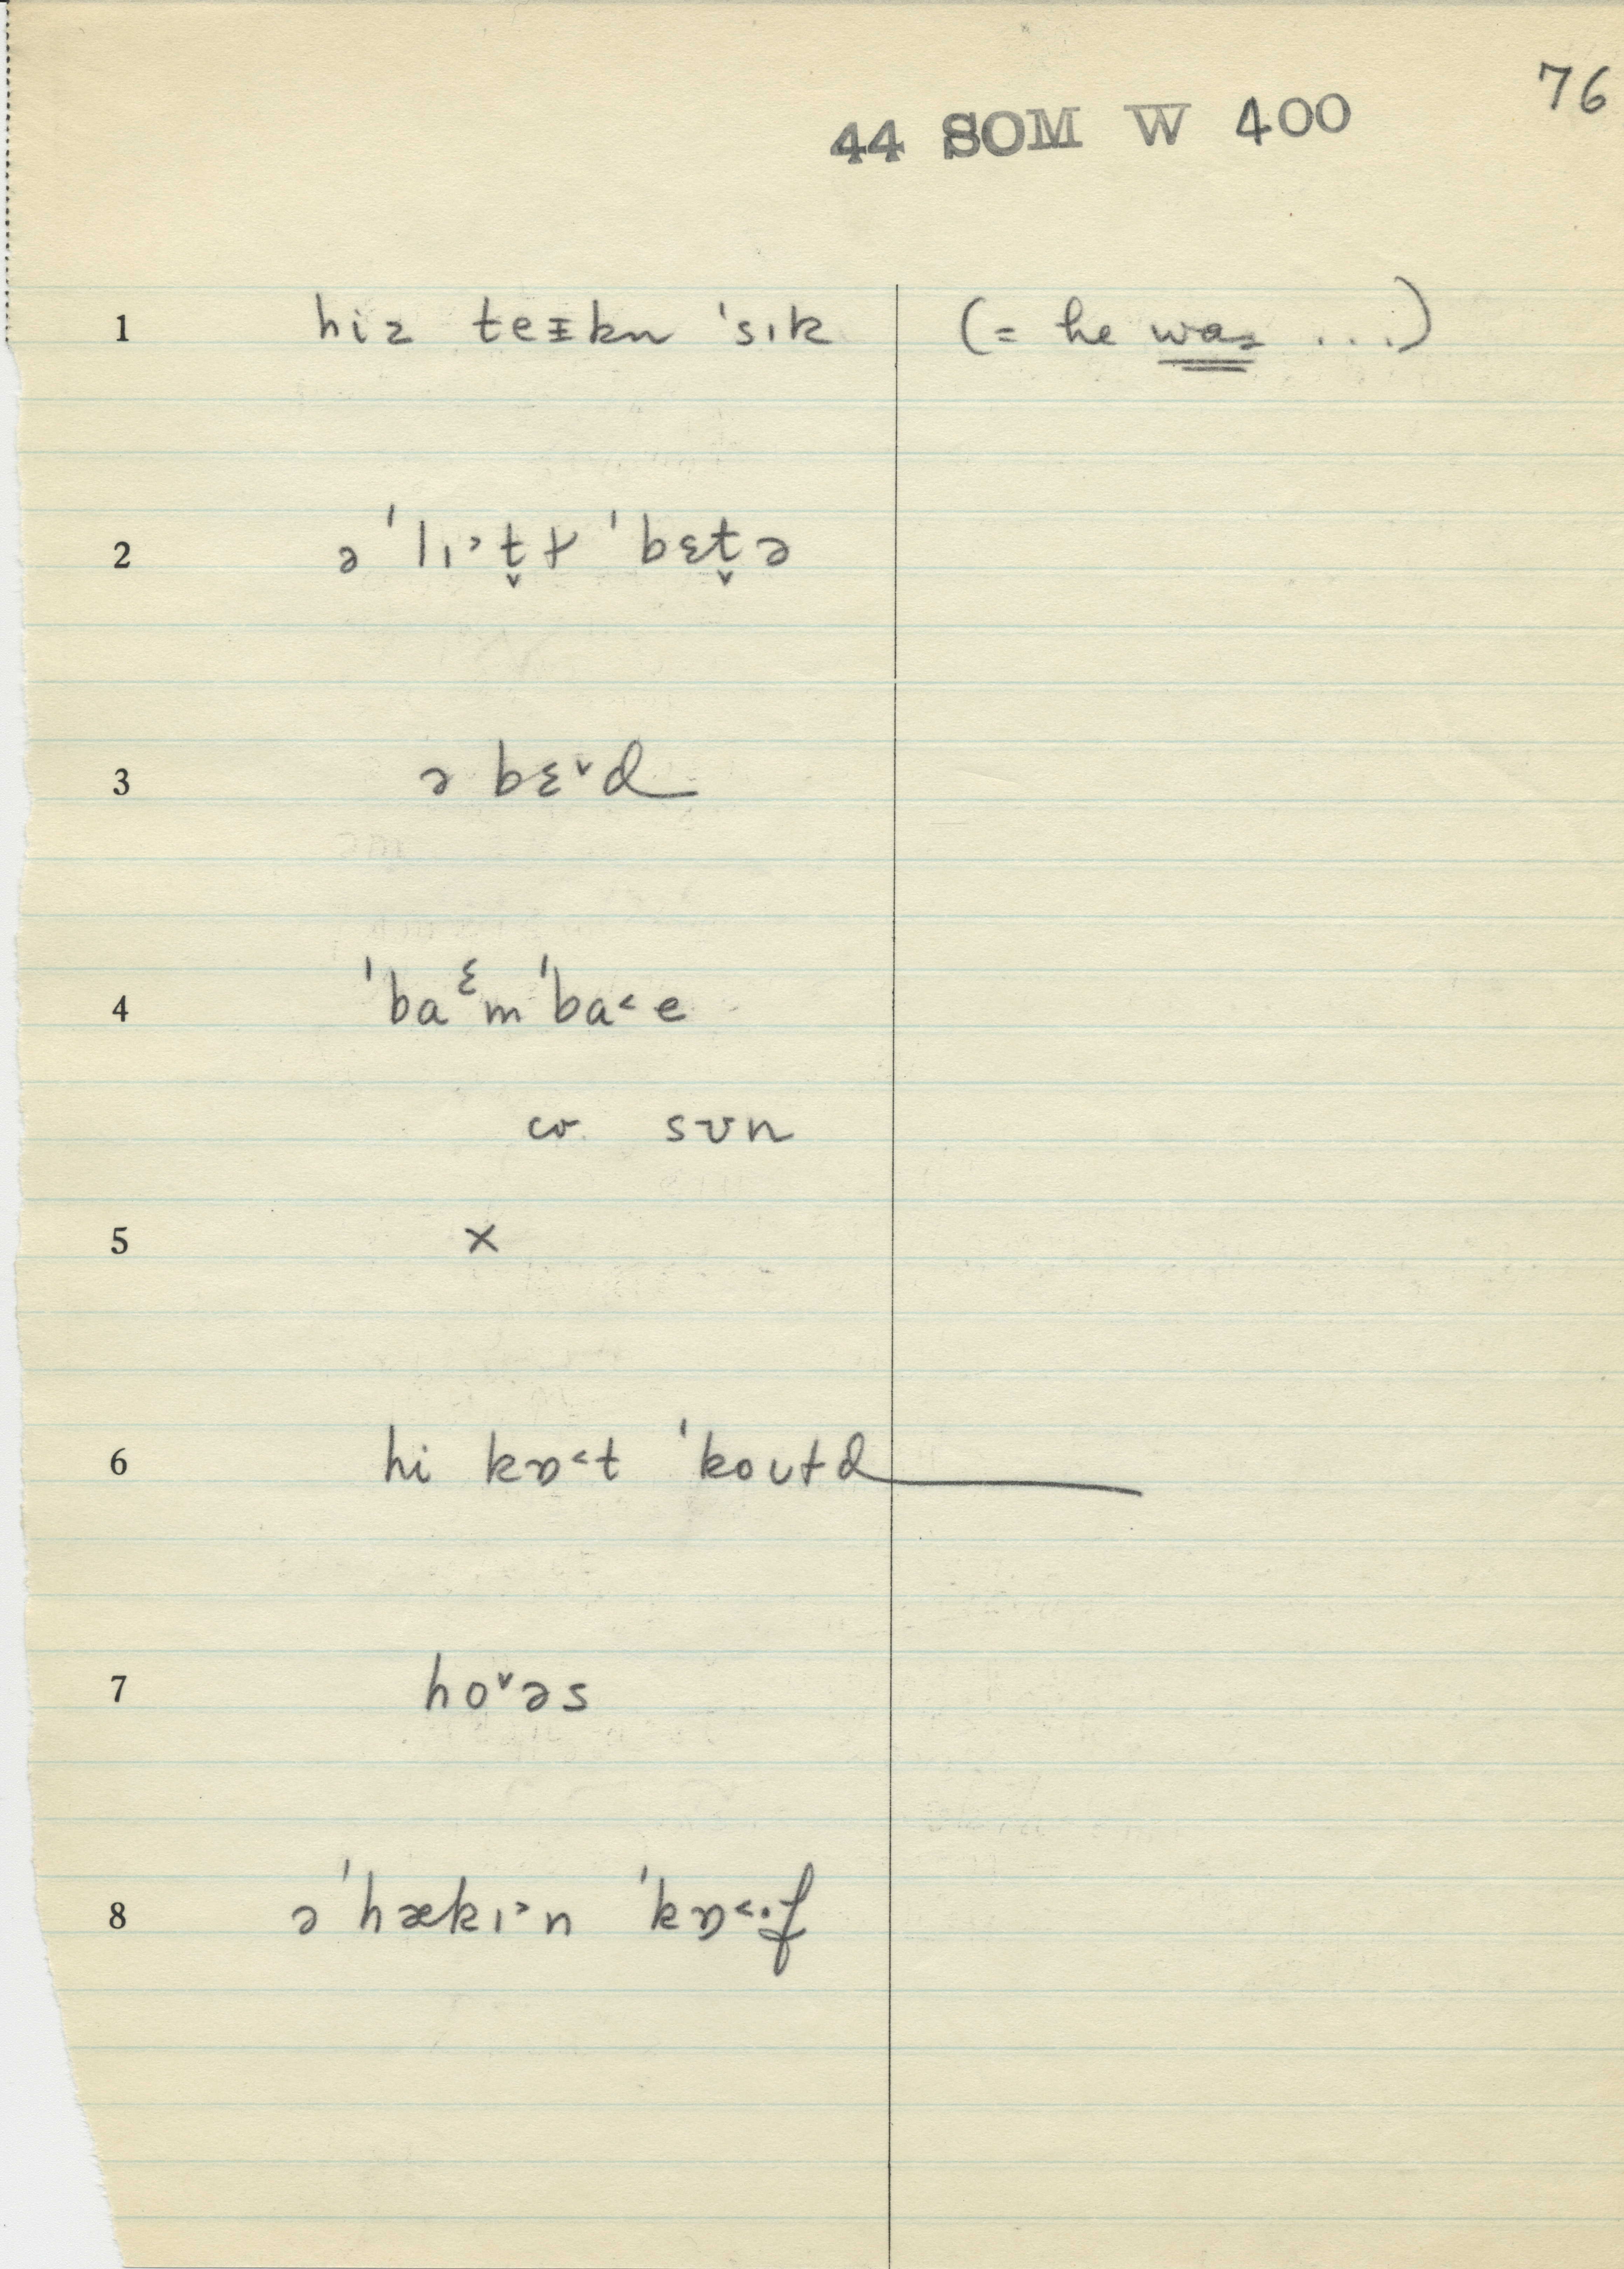 76
44 SOM W 400
1 hiz teɪkn ˈsɪk (= he was ...)
2 ə ˈlɪ˃t̬ɫ ˈbɛt̬ə
3 ə bɛ˅d
4 ˈbaᵋm ˈba˂e
cr. sʊn
5 x
6 hi kɒ˂t ˈkoʊtd
7 ho˅əs
8 ə ˈhækɪ˃n ˈkɒ˂·f